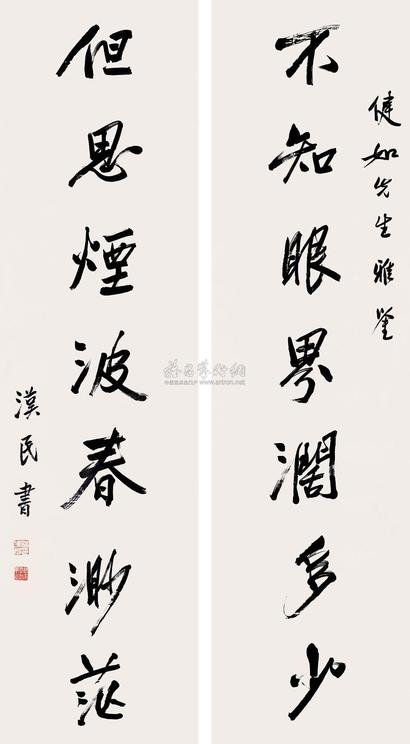 健如先生雅鉴
不知眼界濶多少
但思煙波春渺茫
漢民書
www.artron.net